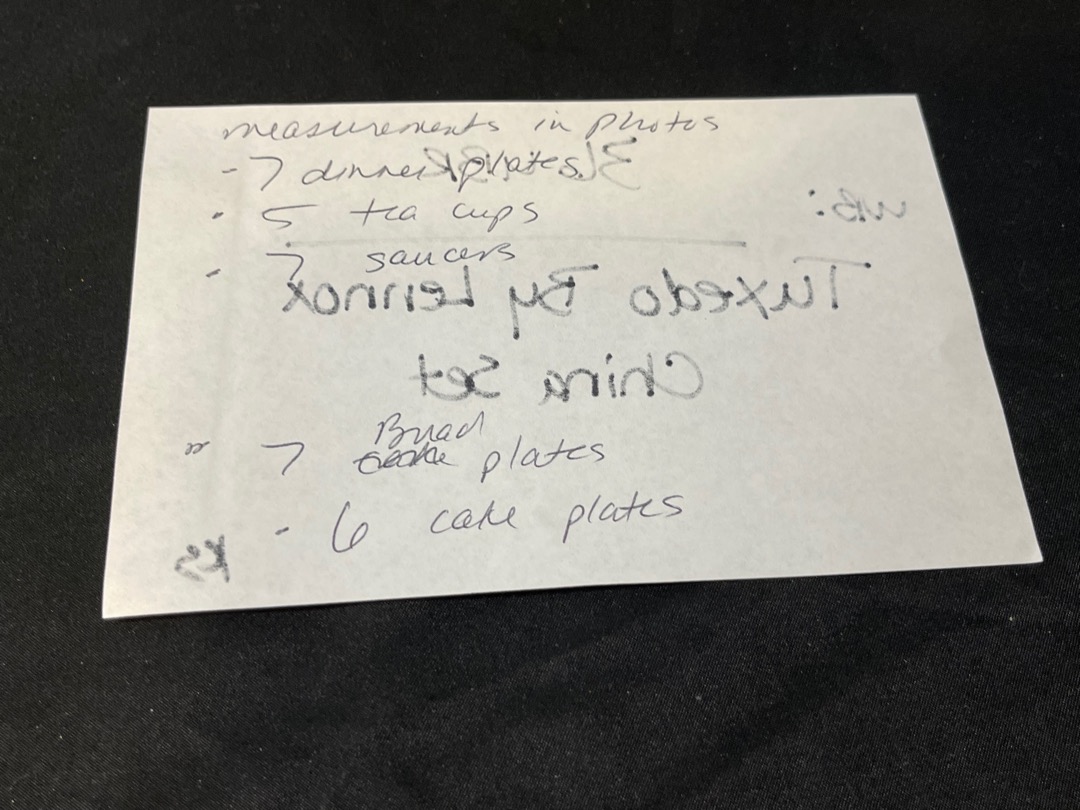 measurements in photos
- 7 dinner plates
- 5 tea cups
- 7 saucers
Tuxedo By Lennox
China Set
7 Bread plates
- 6 cake plates
KS